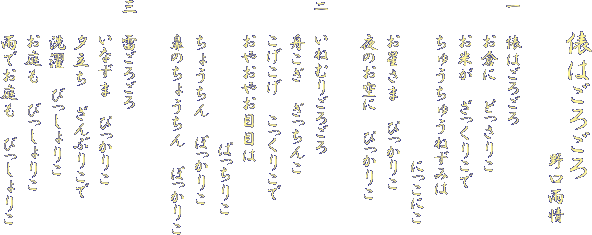 俵はごろごろ
野口雨情
一
俵はごろごろ
お倉に どっさりこ
お米が ざっくりこで
ちゅうちゅうねずみは
にっこにこ
お星さま ぴっかりこ
夜のお空に ぴっかりこ
二
いねむりごろごろ
舟こぎ ぎっちんこ
こげこげ こっくりこで
おやおやお目目は
ぱっちりこ
ちょうちん ぱっかりこ
鼻のちょうちん ぱっかりこ
三
雷ごろごろ
いなずま ぴっかりこ
夕立ち ざんぶりこで
洗濯 びっしょりこ
お庭も びっしょりこ
雨でお庭も びっしょりこ